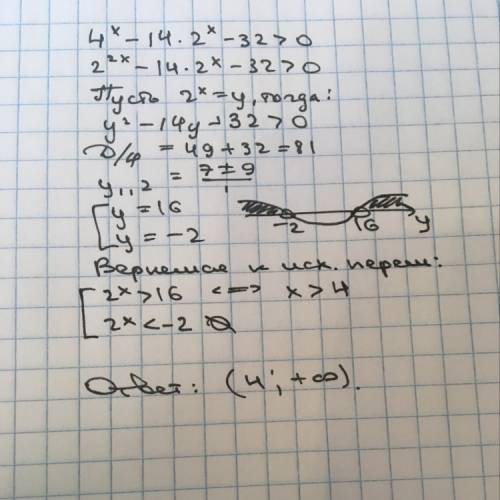 4ˣ - 14 · 2ˣ - 32 > 0
2²ˣ - 14 · 2ˣ - 32 > 0
Пусть 2ˣ = y, тогда:
y² - 14y - 32 > 0
D/4 = 49 + 32 = 81
y₁,₂ = (7 ± 9)/1
[ y = 16
[ y = -2
-2 16 y
Вернемся к исх. перем:
[ 2ˣ > 16 <=> x > 4
[ 2ˣ < -2 ∅
Ответ: (4; +∞).